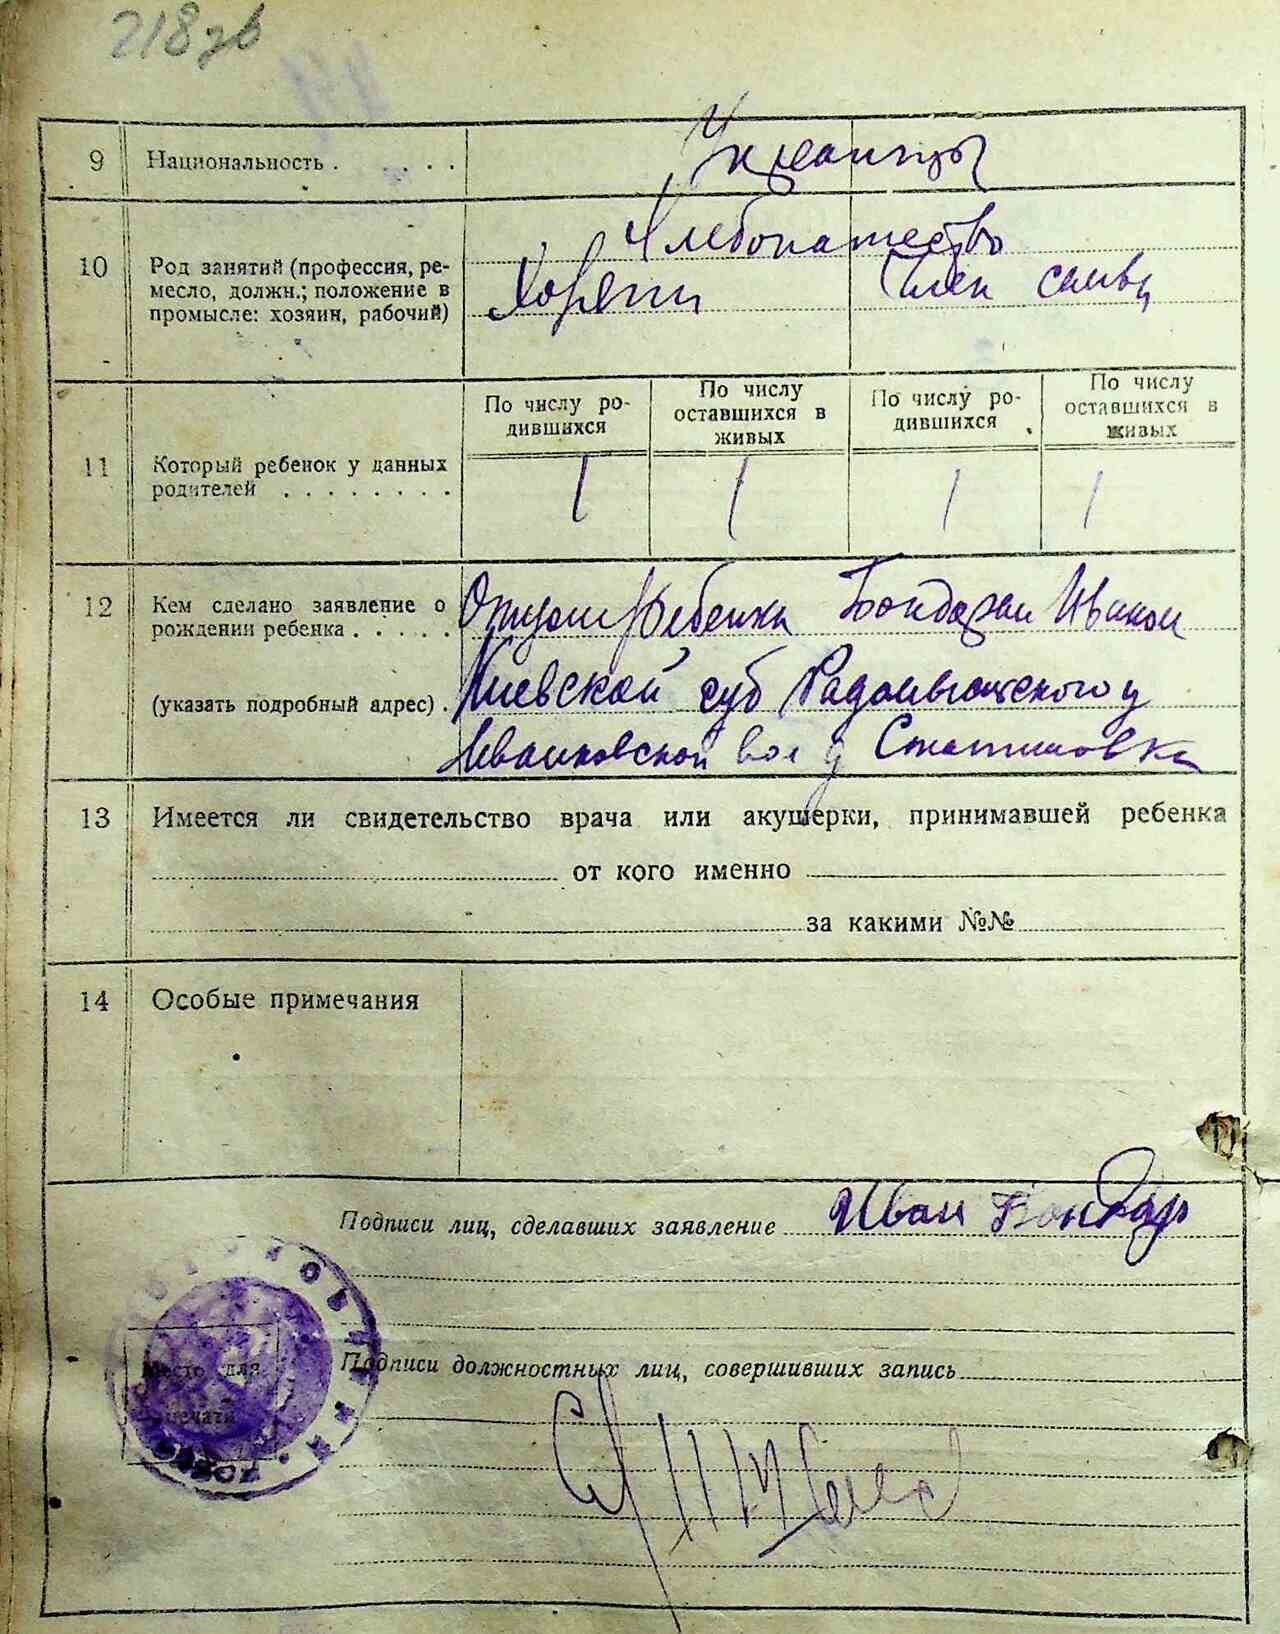 218 зв
9 Национальность . . . . . Украинцы
Хлебопашество
10 Род занятий (профессия, ре-
месло, должн.; положение в
промысле: хозяин, рабочий)
Хозяин Член семьи
По числу ро-
дившихся
По числу
оставшихся в
живых
По числу ро-
дившихся
По числу
оставшихся в
живых
11 Который ребенок у данных
родителей . . . . . . . .
1 1 1 1
12 Кем сделано заявление о
рождении ребенка . . . . .
(указать подробный адрес) .
Отцом ребенка Бондарем Иваном
Киевской губ Радомысльского у
Иванковской вол д
13 Имеется ли свидетельство врача или акушерки, принимавшей ребенка
от кого именно
за какими №№
14 Особые примечания
Подписи лиц, сделавших заявление Иван Бондар
Подписи должностных лиц, совершивших запись
Место для
печати